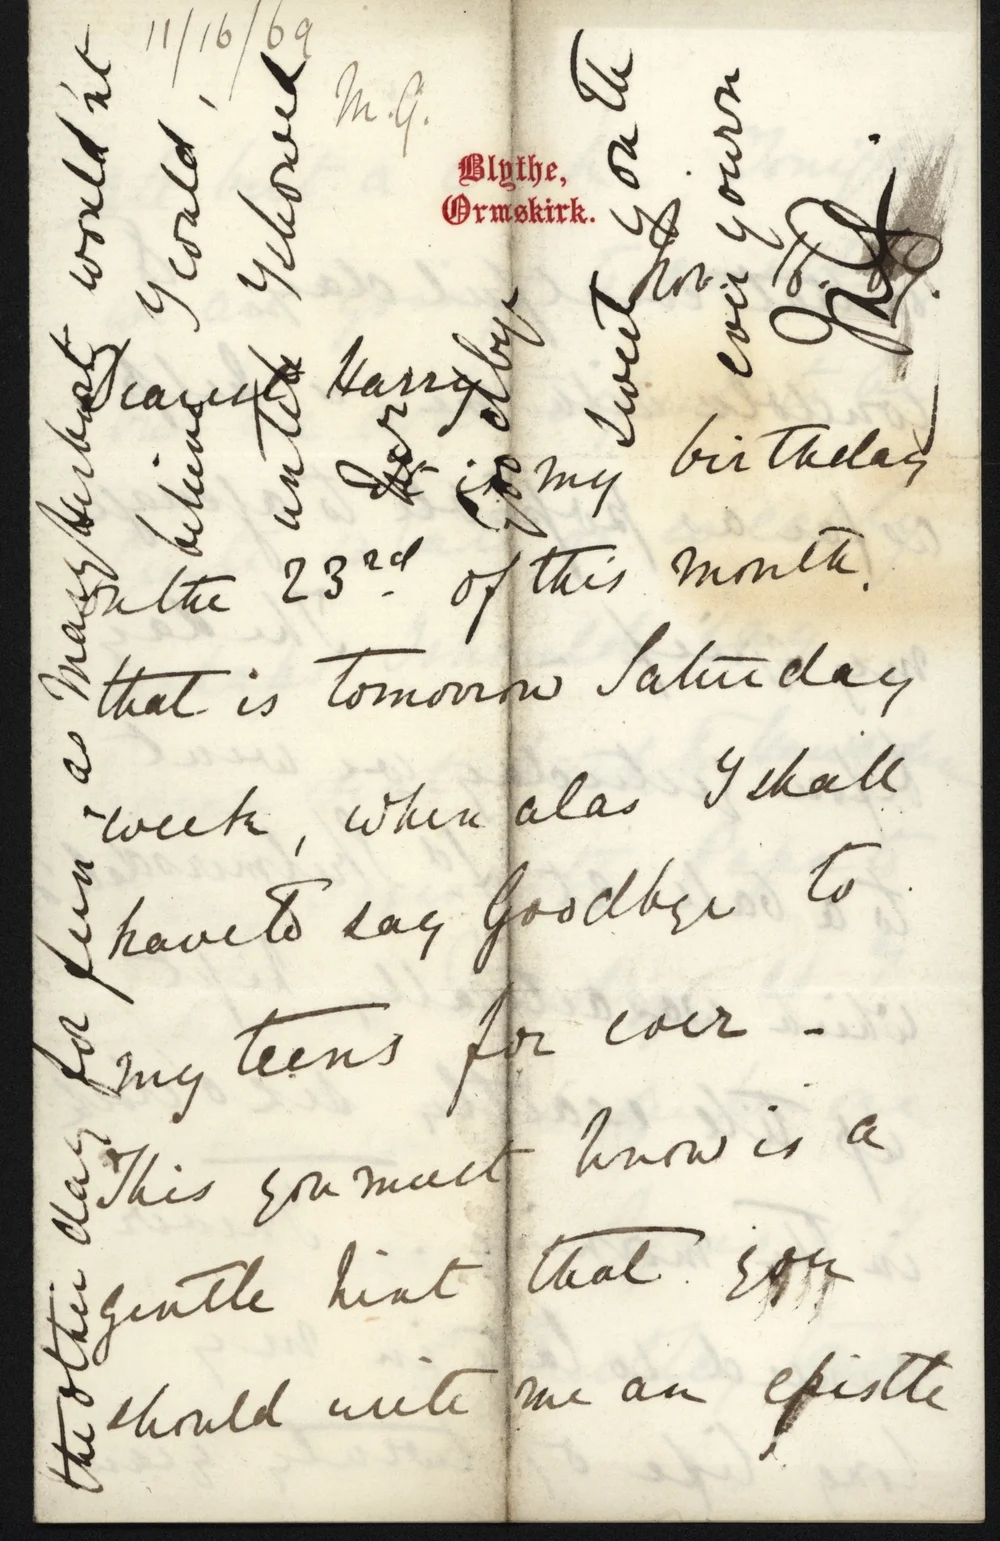 11/16/69
M.G.
Blythe,
Ormskirk.
Nov.
Dearest Harry
It is my birthday
on the 23rd of this month.
that is tomorrow Saturday
week, when alas I shall
have to say Goodbye to
my teens for ever -
This you must know is a
gentle hint that you
should write me an epistle
the other day for fun - as Mary Herbert would'nt
believe I could,
until I showed
her. Goodbye
sweet youth
ever yours